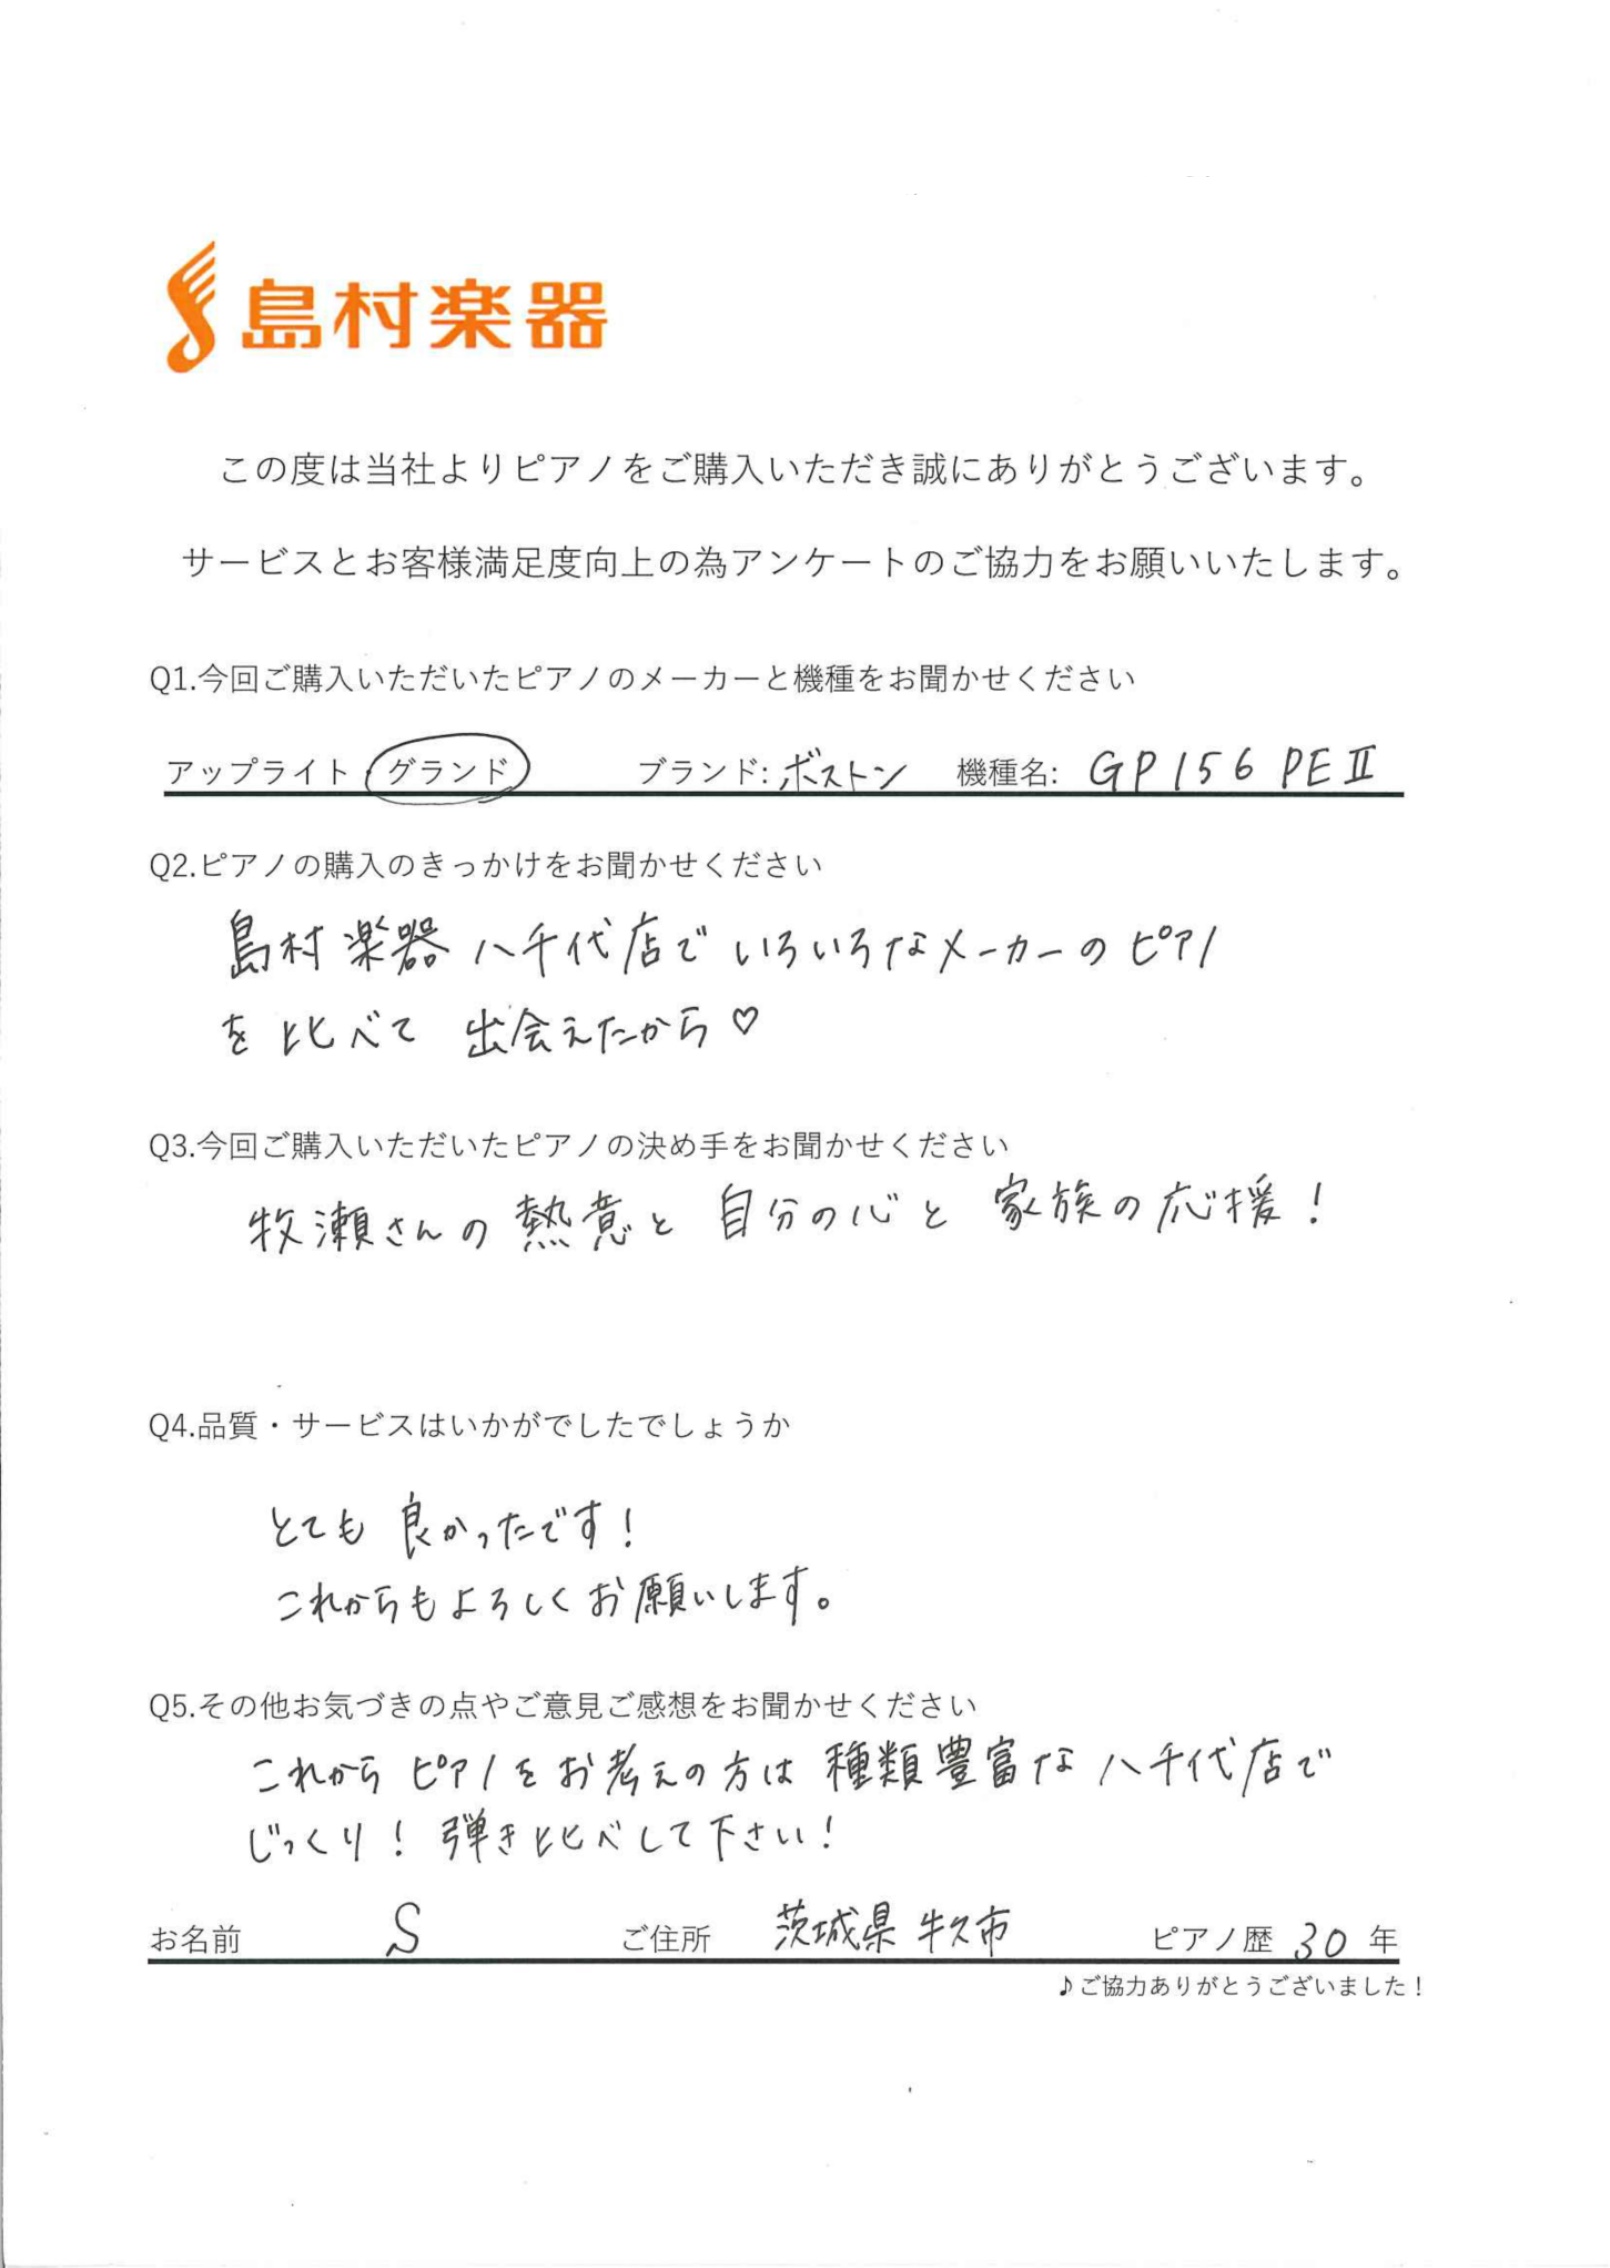 島村楽器
この度は当社よりピアノをご購入いただき誠にありがとうございます。
サービスとお客様満足度向上の為アンケートのご協力をお願いいたします。
Q1.今回ご購入いただいたピアノのメーカーと機種をお聞かせください
アップライト グランド ブランド: ボストン 機種名: GP156 PEⅡ
Q2.ピアノの購入のきっかけをお聞かせください
島村楽器 八千代店で いろいろなメーカーの ピアノ
を 比べて 出会えたから♡
Q3.今回ご購入いただいたピアノの決め手をお聞かせください
牧瀬さんの 熱意と 自分の心と 家族の応援!
Q4.品質・サービスはいかがでしたでしょうか
とても 良かったです!
これからもよろしくお願いします。
Q5.その他お気づきの点やご意見ご感想をお聞かせください
これから ピアノをお考えの方は 種類豊富な 八千代店で
じっくり! 弾き比べして下さい!
お名前 S ご住所 茨城県 牛久市 ピアノ歴 30 年
♪ご協力ありがとうございました!